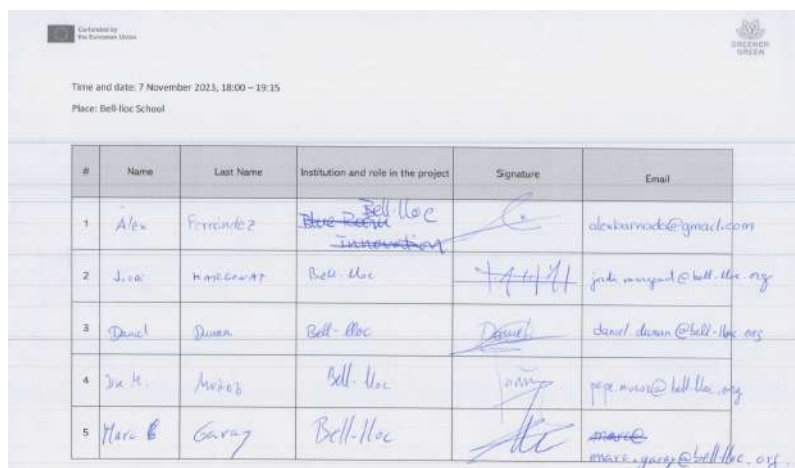 Co-funded by
the European Union
GREENER
GREEN
Time and date: 7 November 2023, 18:00 – 19:15
Place: Bell-lloc School
# Name Last Name Institution and role in the project Signature Email
1 Álex Ferrández Blue Room Innovation Bell-lloc
2 Bell-lloc
3 Daniel Duran Bell-lloc Daniel daniel.duran@bell-lloc.org
4 Muñoz Bell-lloc pepe.munoz@bell-lloc.org
5 Marc Garay Bell-lloc marc@
marc.garay@bell-lloc.org